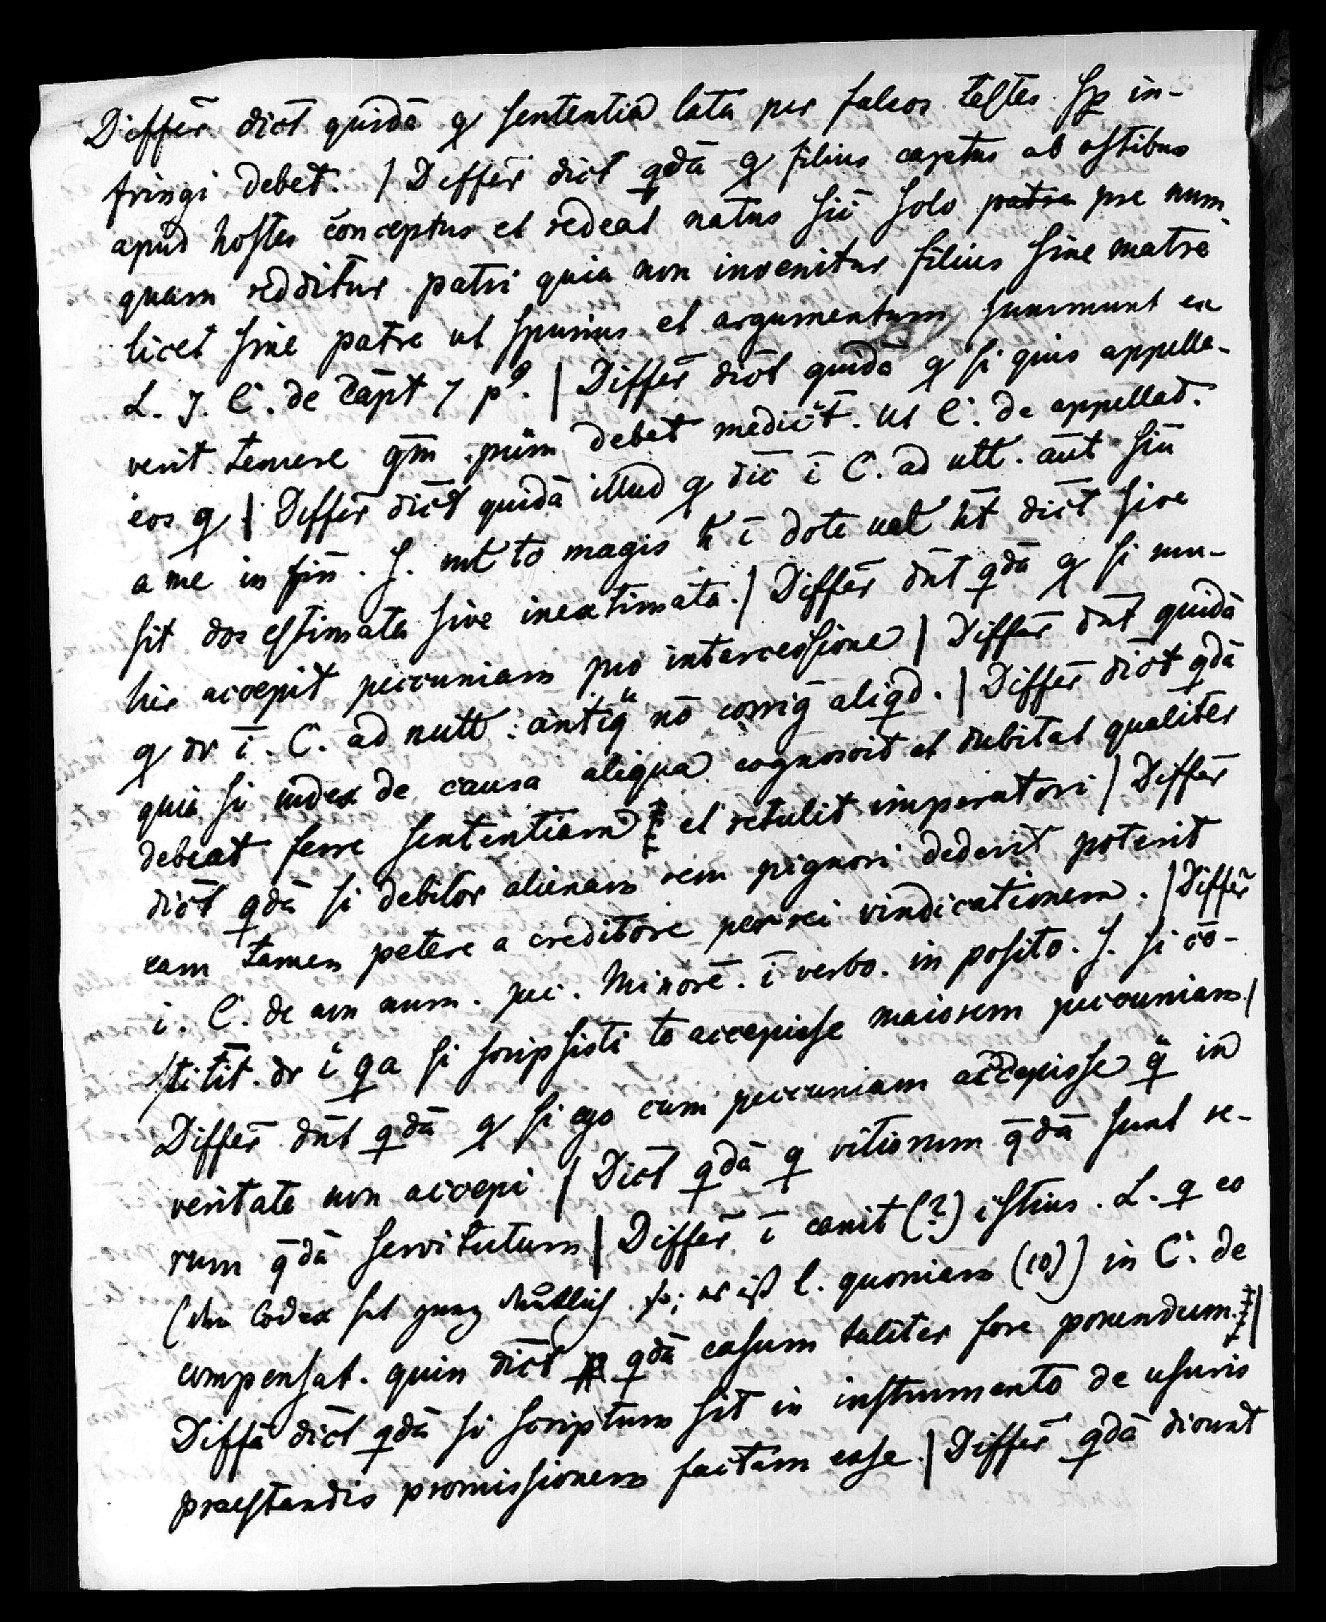 Differ̄ dict̄ quidā ꝙ sententia lata per falsos testes ſp in-
fringi debet. | Differ̄ dict qdā ꝙ filius captus ab ostibus
apud hostes conceptus et redeat natus sit solo pre num-
quam redditur patri quia non invenitur filius sine matre
licet sine patre ut spurius et argumentum summunt ex
L. J. C. de capt 7 p°. | Differ̄ dict̄ quidā ꝙ si quis appella-
verit temere qm̄ debet medict̄. ut C. de appellat.
eos ꝙ | Differ̄ dict̄ quidā illud ꝙ dic̄ ī C. ad ult. aut̄ sin̄
a me in fin̄. J. to magis ī dote uel dict̄ sive
sit dos estimata sive inextimata. | Differ̄ dn̄t qdā ꝙ si mu-
lier accepit peccuniam pro intercessione | Differ̄ dn̄t quidā
ꝙ dr ī. C. ad null: antiq nō corriḡ aliqd. | Differ̄ dict̄ qdā
quia si iudex de causa aliqua cognoscit et dubitat qualiter
debeat ferre sententiam et retulit imperatori | Differ̄
dict̄ qdā si debitor alienam rem pignori dederit poterit
eam tamen petere a creditore per rei vindicationem. | Differ̄
i. C. de nn num. pec. Minorē. ī verbo. in posito. J. si cō-
stitit. dr ī qa si scripsisti te accepisse maiorem peccuniam |
Differ̄ dn̄t qdā ꝙ si ego cum peccuniam accepisse q̄ in
veritate non accepi | Dict̄ qdā q vitiorum q̄dā sunt re-
rum q̄dā servitutum | Differ̄ ī canit (?) istius. L. q eo
(Im Codex ganz deutlich so; es ist l. quoniam (10)) in C. de
compensat. quin dict̄ qdā casum taliter fore ponendum. |
Differ̄ dict̄ qdā si scriptum sit in instrumento de usuris
praestandis promissionem factam esse. | Differ̄ qdā dicunt